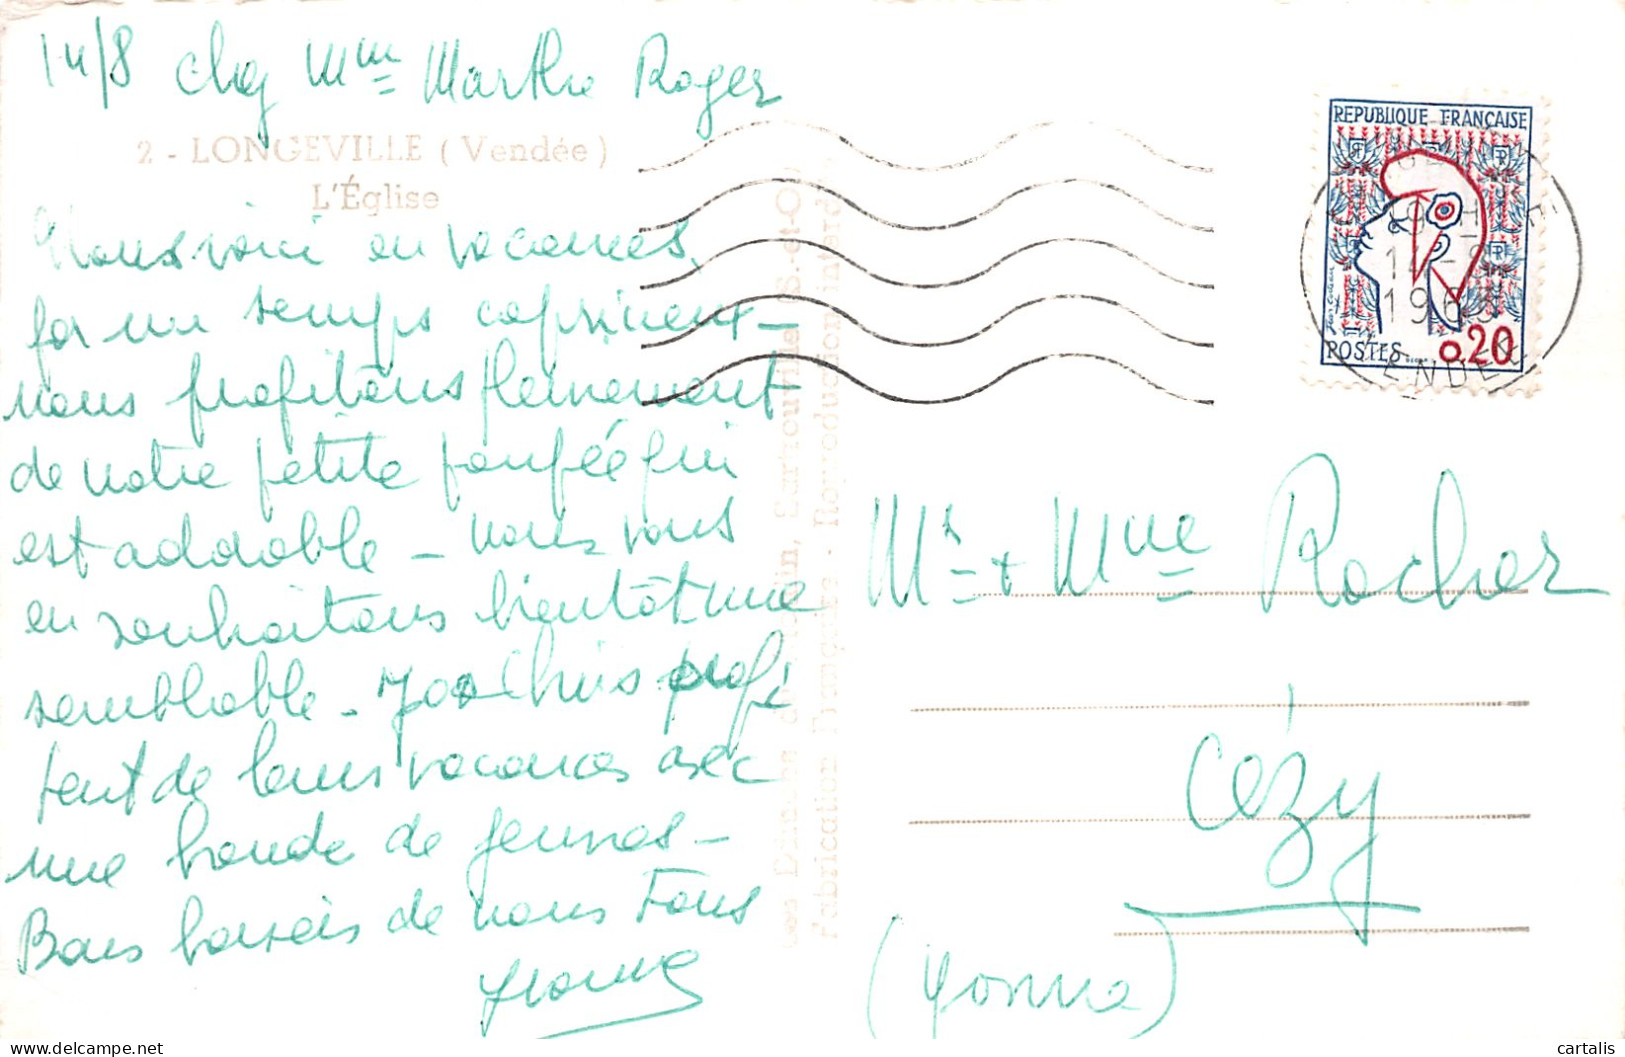 14/8 chez Mme Marthe Roger
2 - LONGEVILLE (Vendée)
L'Église
Nous voici en vacances
par un temps capricieux -
nous profitons pleinement
de notre petite poupée qui
est adorable - nous vous
en souhaitons bientôt une
semblable - Jo Chris profi
tent de leurs vacances avec
une bande de jeunes -
Bons baisers de nous Tous
Yvonne
Fabrication Française - Reproduction interdite
REPUBLIQUE FRANÇAISE
POSTES 0.20
19 H
14-8
1963
VENDEE
Mr + Mme Rocher
Cézy
(Yonne)
delcampe.net
cartalis